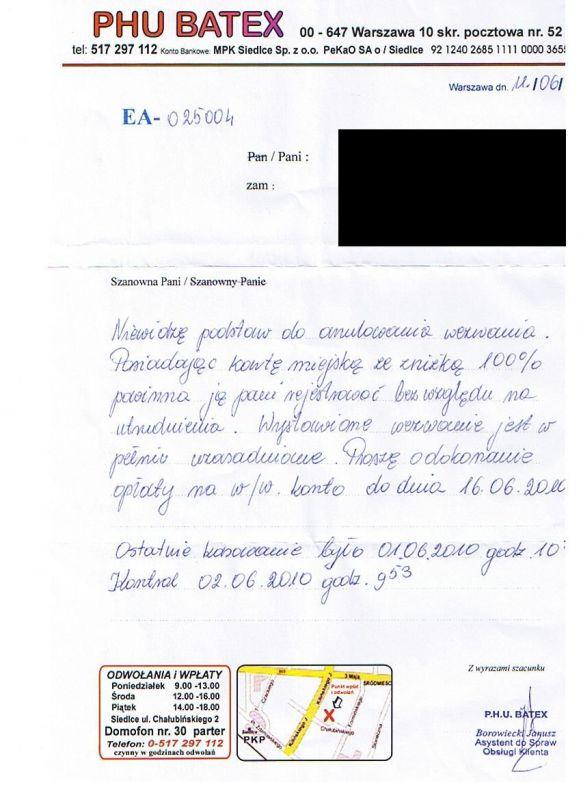 PHU BATEX 00 - 647 Warszawa 10 skr. pocztowa nr. 52
tel: 517 297 112 Konto Bankowe: MPK Siedlce Sp. z o.o. PeKaO SA o / Siedlce 92 1240 2685 1111 0000 365
Warszawa dn. 11/06/
EA- 025004
Pan / Pani :
zam :
Szanowna Pani / Szanowny Panie
Niewidzę podstaw do anulowania wezwania.
Posiadając kartę miejską ze zniżką 100%
powinna ją pani rejestrować bez względu na
utrudnienia. Wystawione wezwanie jest w
pełni uzasadnione. Proszę o dokonanie
opłaty na w/w. konto do dnia 16.06.2010
Ostatnie kasowanie było 01.06.2010 godz. 10
Kontrol 02.06.2010 godz. 9 53
ODWOŁANIA i WPŁATY
Poniedziałek 9.00 -13.00
Środa 12.00 -16.00
Piątek 14.00 -18.00
Siedlce ul. Chałubińskiego 2
Domofon nr. 30 parter
Telefon: 0-517 297 112
czynny w godzinach odwołań
3 Maja
ŚRÓDMIEŚC
Punkt wpłat
i odwołań
X
Chałubińskiego
PKP
Z wyrazami szacunku
P.H.U. BATEX
Borowiecki Janusz
Asystent do Spraw
Obsługi Klienta